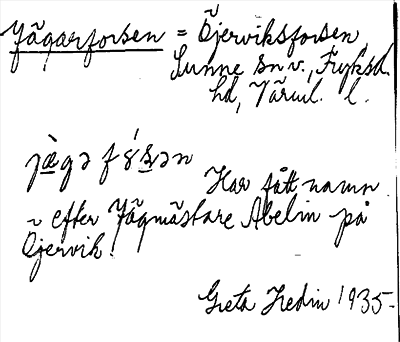 Jägarforsen = Öjerviksforsen,
Sunne sn v., Fryksd.
hd, Värml. l.
jæ̀gə fɤ́ʂən
Har fått namn
efter Jägmästare Abelin på
Öjervik.
Greta Hedin 1935-